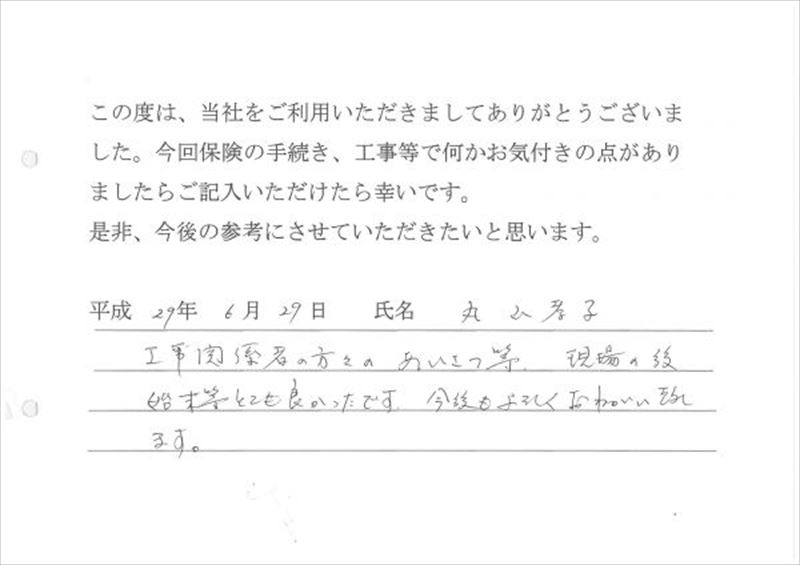 この度は、当社をご利用いただきましてありがとうございま
した。今回保険の手続き、工事等で何かお気付きの点があり
ましたらご記入いただけたら幸いです。
是非、今後の参考にさせていただきたいと思います。
平成 29年 6月 29日 氏名 丸山孝子
工事関係者の方々の あいさつ等、現場の後
始末等とても良かったです。今後もよろしくおねがい致し
ます。